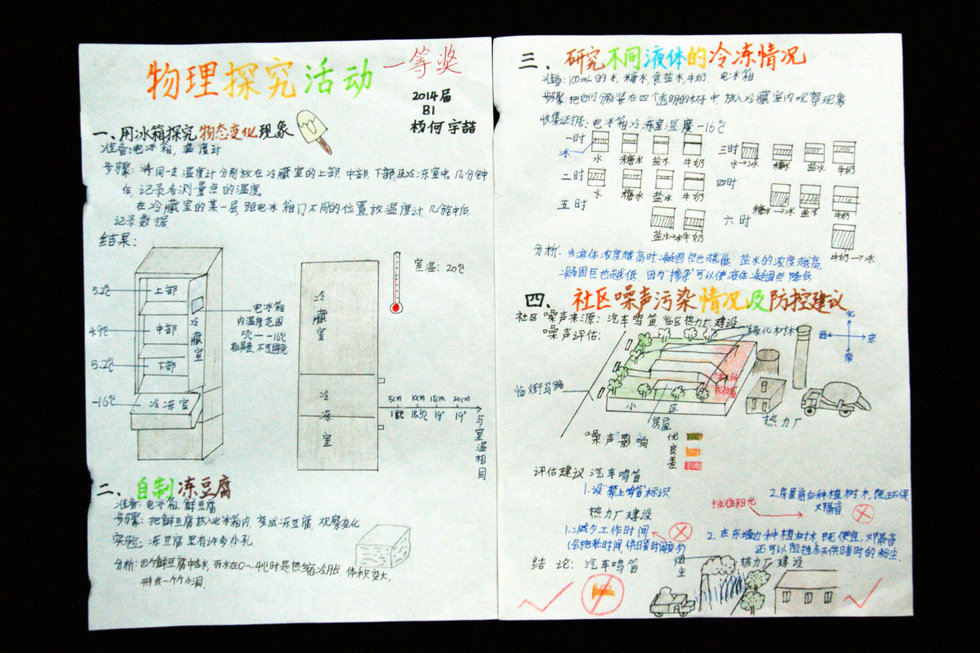 物理探究活动
一等奖
2014届
B1
杨何宇喆
一、用冰箱探究物态变化现象
准备电冰箱，温度计
步骤：将同一支温度计分别放在冷藏室的上部 中部 下部及冷冻室中，几分钟
后 记录各测量点的温度
在冷藏室的某一层距电冰箱门不同的位置放温度计 几分钟后
记录数据
结果：
5.2℃
上部
4.9℃
中部
5.2℃
下部
-16℃
冷冻室
冷藏室
电冰箱
内温度范围
5℃ — -16℃
冷藏室
冷冻室
室温：20℃
5cm 10cm 15cm 20cm
18℃ 18.5℃ 19° 19°
与室温相同
二、自制冻豆腐
准备：电冰箱，鲜豆腐
步骤：把鲜豆腐放入电冰箱内 变成冻豆腐 观察变化
实验：冻豆腐里有许多小孔
分析：因为鲜豆腐中含水，而水在0~4℃时是热缩冷胀 体积变大，
形成一个个小洞
三、研究不同液体的冷冻情况
准备：100mL的水 糖水 食盐水 牛奶 电冰箱
步骤：把他们分别装在四个透明的杯中 放入冷藏室内观察现象
收集证据：电冰箱冷冻室温度-16℃
一时
冰
水 糖水 盐水 牛奶
二时
水 糖水 盐水 牛奶
三时
水→冰 糖水 盐水 牛奶
四时
糖水→冰 盐水 牛奶
五时
盐水→冰 牛奶
六时
牛奶→冰
分析：当液体浓度越高时凝固点也越低 盐水的浓度越高，
凝固点也越低 因为"掺杂"可以使液体凝固点降低
四、社区噪声污染情况及防控建议
社区噪声来源：汽车鸣笛 临区热力厂建设
噪声评估：
绿化树木
北
西
东
南
临街马路
小区
房屋
热力厂
噪声影响
优
良
差
评估建议
汽车鸣笛
1.设"禁止鸣笛"标识
2.房屋前后种植树木，既环保
又隔音
热力厂建设
1.减少工作时间
2.在东墙边种植树木 既便宜，又隔音
还可以阻挡冬天供暖时的粉尘
结论：
汽车鸣笛
热力厂建设